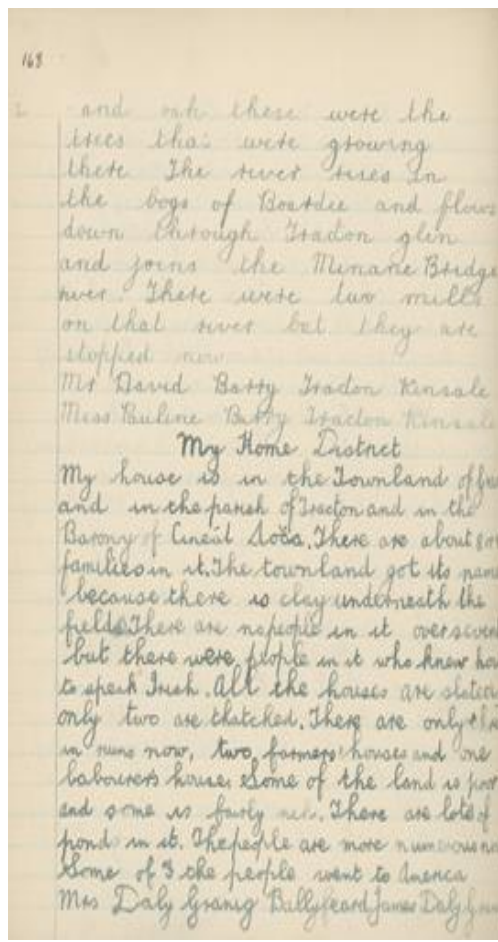 168
and oak these were the
trees that were growing
there The river rises in
the bogs of Boardee and flows
down through Tracton glen
and joins the Minane Bridge
river. There were two mills
on that river but they are
stopped now
Mr David Barry Tracton Kinsale
Miss Pauline Barry Tracton Kinsale
My Home District
My house is in the Townland of
and in the parish of Tracton and in the
Barony of Cineál Aoda. There are about
families in it. The townland got its name
because there is clay underneath the
fields There are no people in it over seven
but there were plople in it who knew how
to speak Irish. All the houses are slated
only two are thatched. There are only
in ruins now, two farmers houses and one
labourers house. Some of the land is poor
and some is fairly There are lots of
pond in it. The people are more numerous
Some of the people went to America
Mrs Daly Granig Ballyfeard James Daly